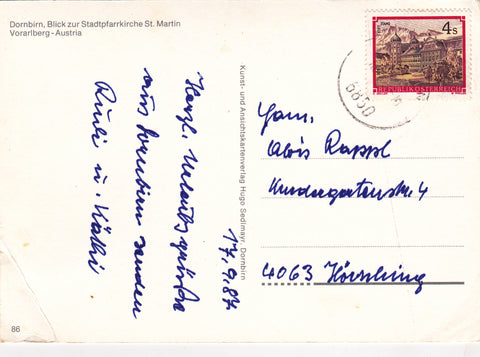 Dornbirn, Blick zur Stadtpfarrkirche St. Martin
Vorarlberg - Austria
17.9.87.
Herzl. Urlaubsgrüße
aus Dornbirn senden
Rudi u. Käthi
Kunst- und Ansichtskartenverlag Hugo Sedlmayr, Dornbirn
4 S
STAMS
REPUBLIK ÖSTERREICH
6850
Fam.
Alois Rappl
Kindergartenstr. 4
4063 Hörsching
86